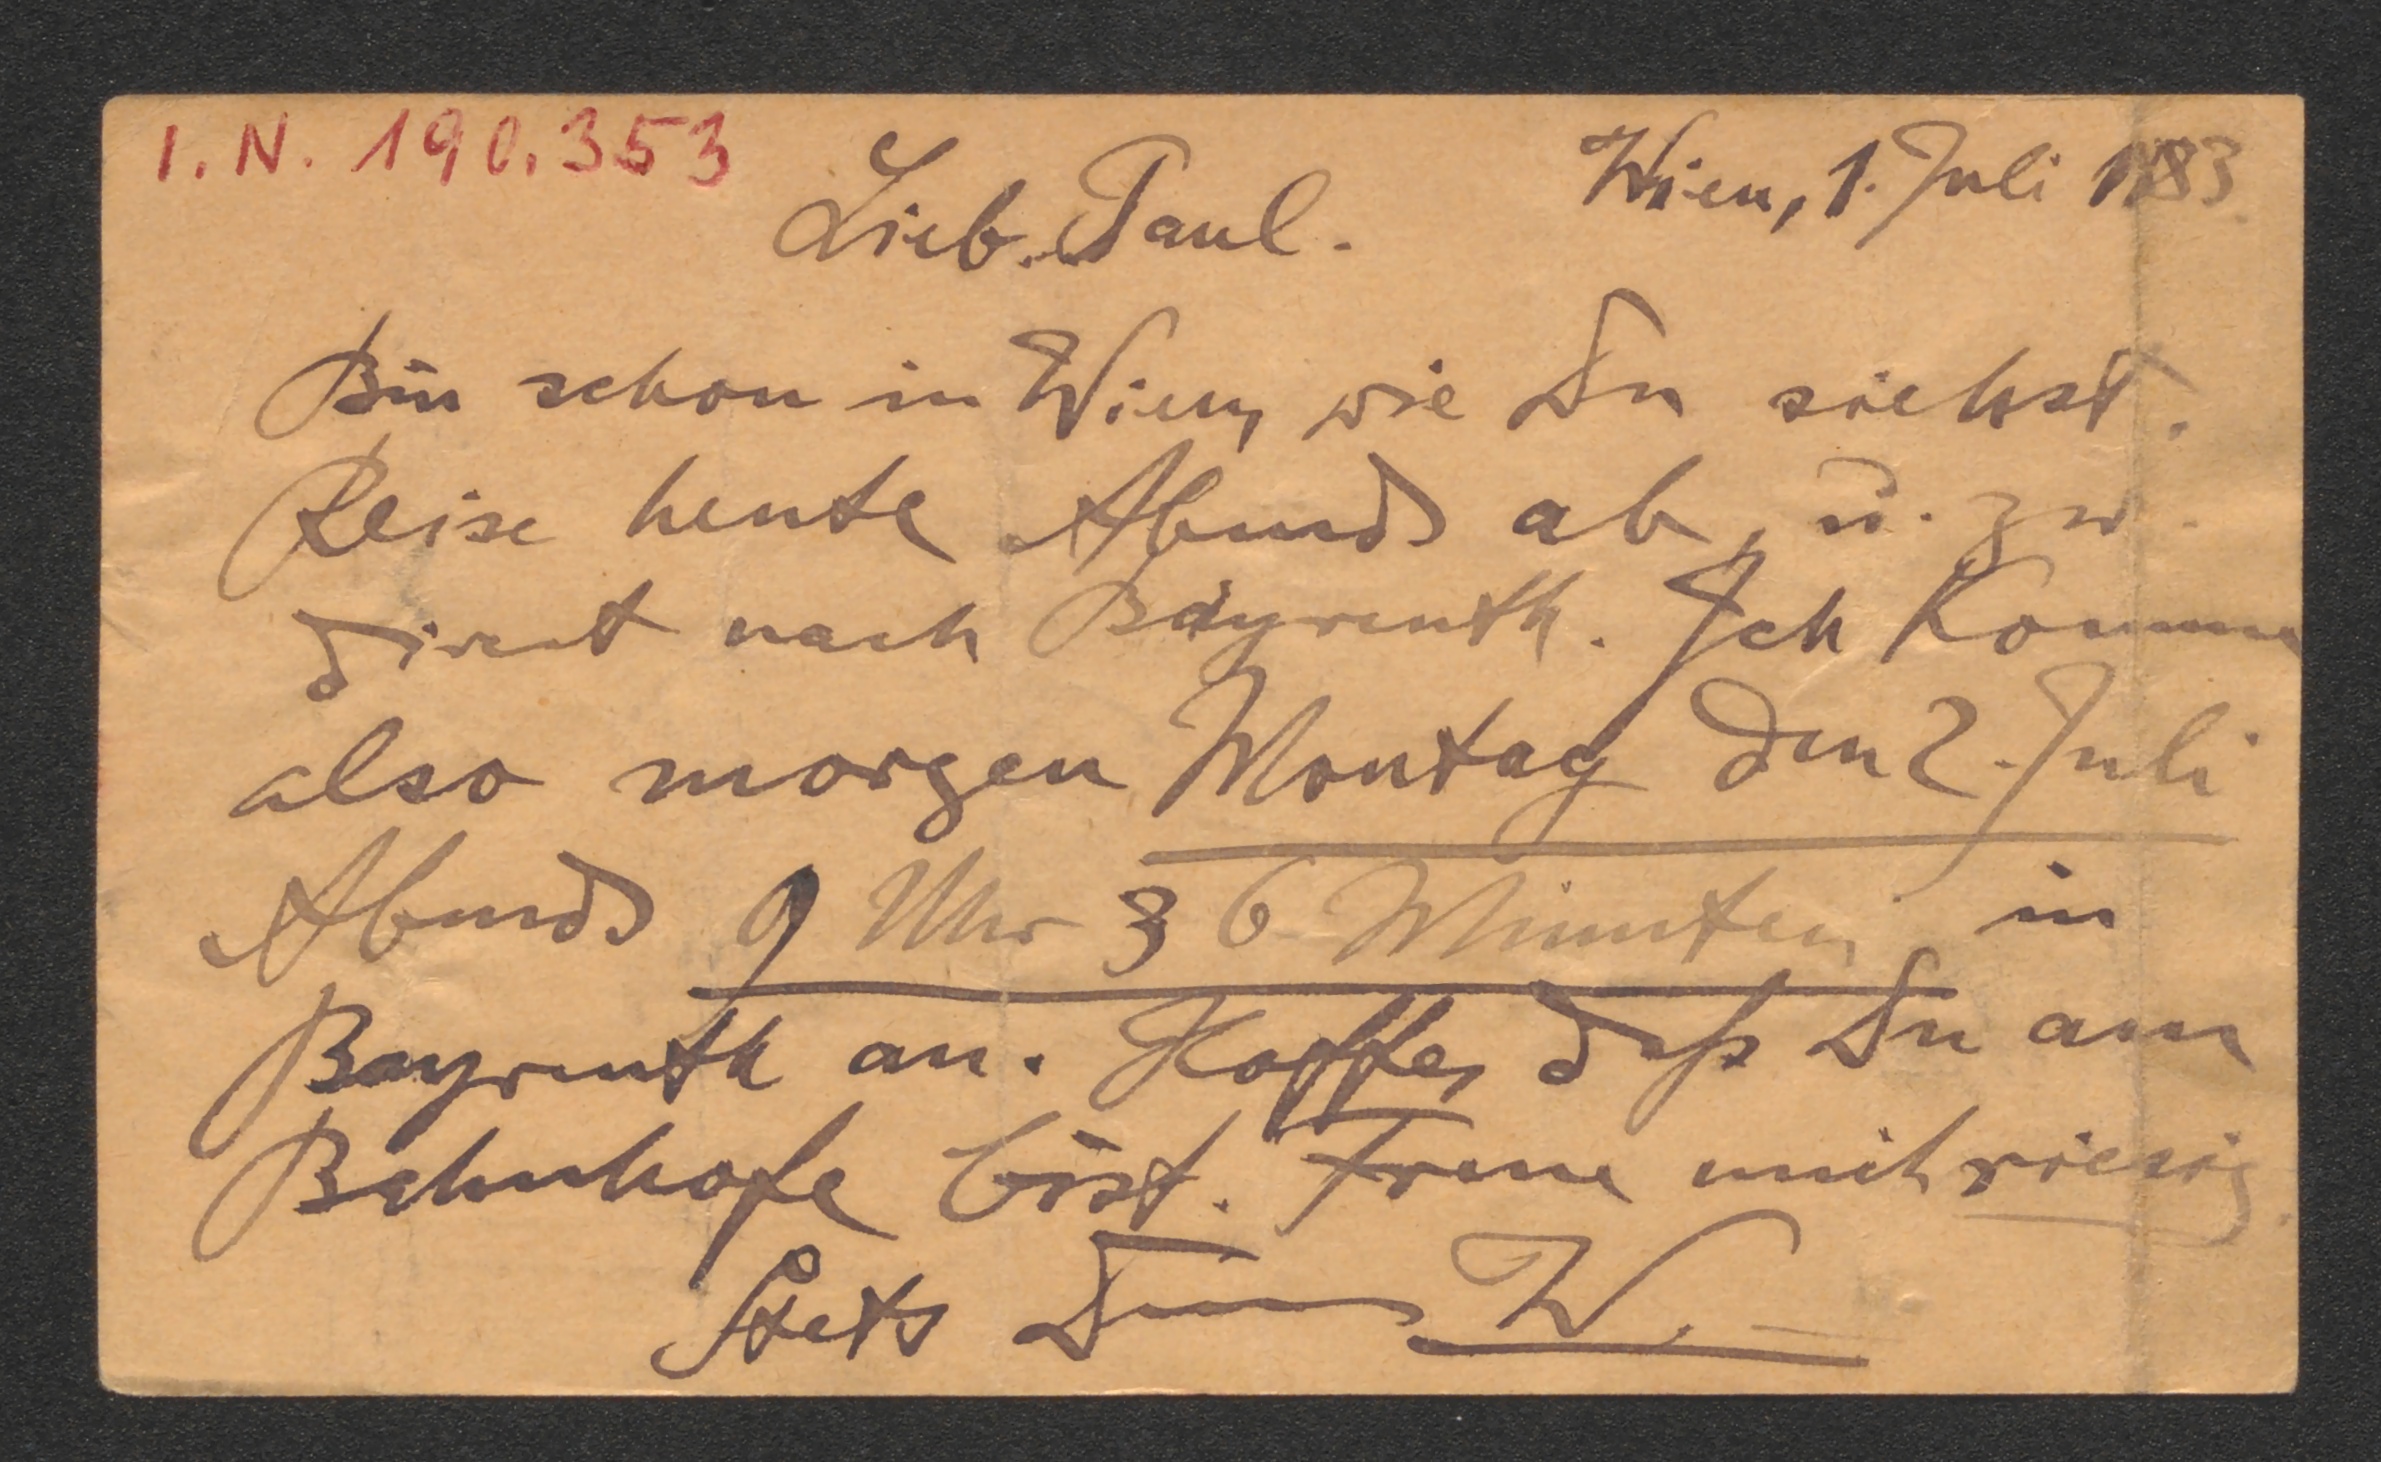 I. N. 190.353
Wien, 1. Juli 1883.
Lieb. Paul.
Bin schon in Wien, wie Du siehst.
Reise heute Abends ab, u. zw.
direct nach Bayreuth. Ich komme
also morgen Montag den 2. Juli
Abends 9 Uhr 36 Minuten in
Bayreuth an. Hoffe, daß Du am
Bahnhofe bist. Freue mich riesig.
Stets Dein W.